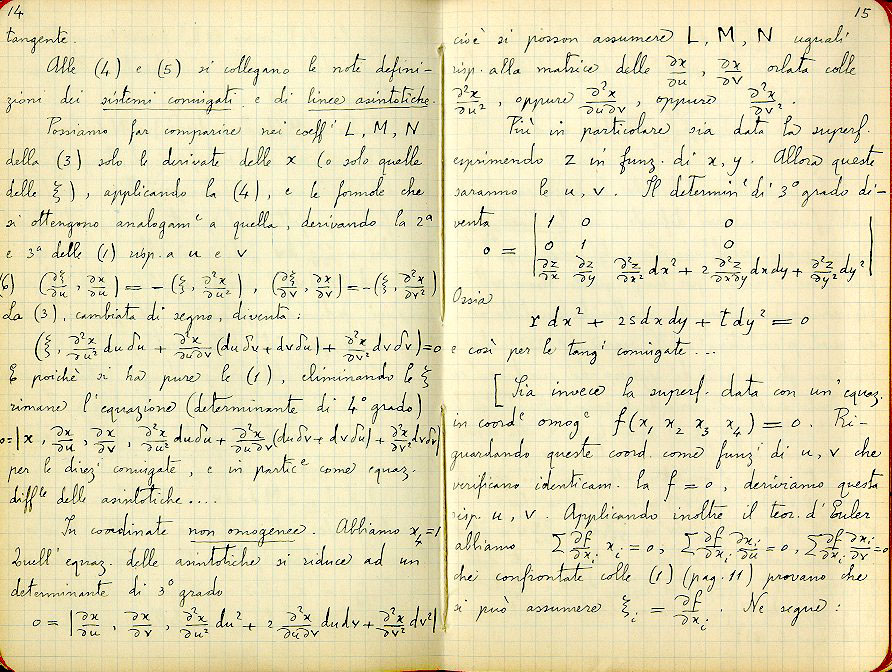 14
tangente.
Alle (4) e (5) si collegano le note defini-
zioni dei sistemi coniugati e di linee asintotiche.
Possiamo far comparire nei coeffⁱ L, M, N
della (3) solo le derivate delle x (o solo quelle
delle ξ), applicando la (4), e le formole che
si ottengono analogamᵉ a quella, derivando la 2ª
e 3ª delle (1) risp. a u e v
(6) (∂ξ/∂u, ∂x/∂u) = −(ξ, ∂²x/∂u²), (∂ξ/∂v, ∂x/∂v) = −(ξ, ∂²x/∂v²)
La (3), cambiata di segno, diventa:
(ξ, ∂²x/∂u² du δu + ∂²x/∂u∂v (du δv + dv δu) + ∂²x/∂v² dv δv) = 0
E poichè si ha pure le (1), eliminando le ξ
rimane l'equazione (determinante di 4º grado)
0 = |x, ∂x/∂u, ∂x/∂v, ∂²x/∂u² du δu + ∂²x/∂u∂v (du δv + dv δu) + ∂²x/∂v² dv δv|
per le direzⁱ coniugate, e in particᵉ come equaz.
diffˡᵉ delle asintotiche....
In coordinate non omogenee. Abbiamo x₄=1
Quell' equaz. delle asintotiche si riduce ad un
determinante di 3º grado
0 = |∂x/∂u, ∂x/∂v, ∂²x/∂u² du² + 2 ∂²x/∂u∂v du dv + ∂²x/∂v² dv²|
15
cioè si posson assumere L, M, N uguali
risp. alla matrice delle ∂x/∂u, ∂x/∂v orlata colle
∂²x/∂u², oppure ∂²x/∂u∂v, oppure ∂²x/∂v².
Più in particolare sia data la superf.
esprimendo z in funz. di x, y. Allora queste
saranno le u, v. Il determinᵉ di 3º grado di-
venta
| 1 0 0 |
0 = | 0 1 0 |
| ∂z/∂x ∂z/∂y ∂²z/∂x² dx² + 2 ∂²z/∂x∂y dx dy + ∂²z/∂y² dy² |
Ossia
r dx² + 2s dx dy + t dy² = 0
e così per le tangⁱ coniugate...
[Sia invece la superf. data con un' equaz.
in coordᵉ omogᵉ f(x₁ x₂ x₃ x₄) = 0. Ri-
guardando queste coord. come funzⁱ di u, v che
verificano identicam. la f = 0, deriviamo questa
risp. u, v. Applicando inoltre il teor. d'Euler
abbiamo ∑ ∂f/∂xᵢ xᵢ = 0, ∑ ∂f/∂xᵢ ∂xᵢ/∂u = 0, ∑ ∂f/∂xᵢ ∂xᵢ/∂v = 0
che confrontate colle (1) (pag. 11) provano che
si può assumere ξᵢ = ∂f/∂xᵢ. Ne segue: